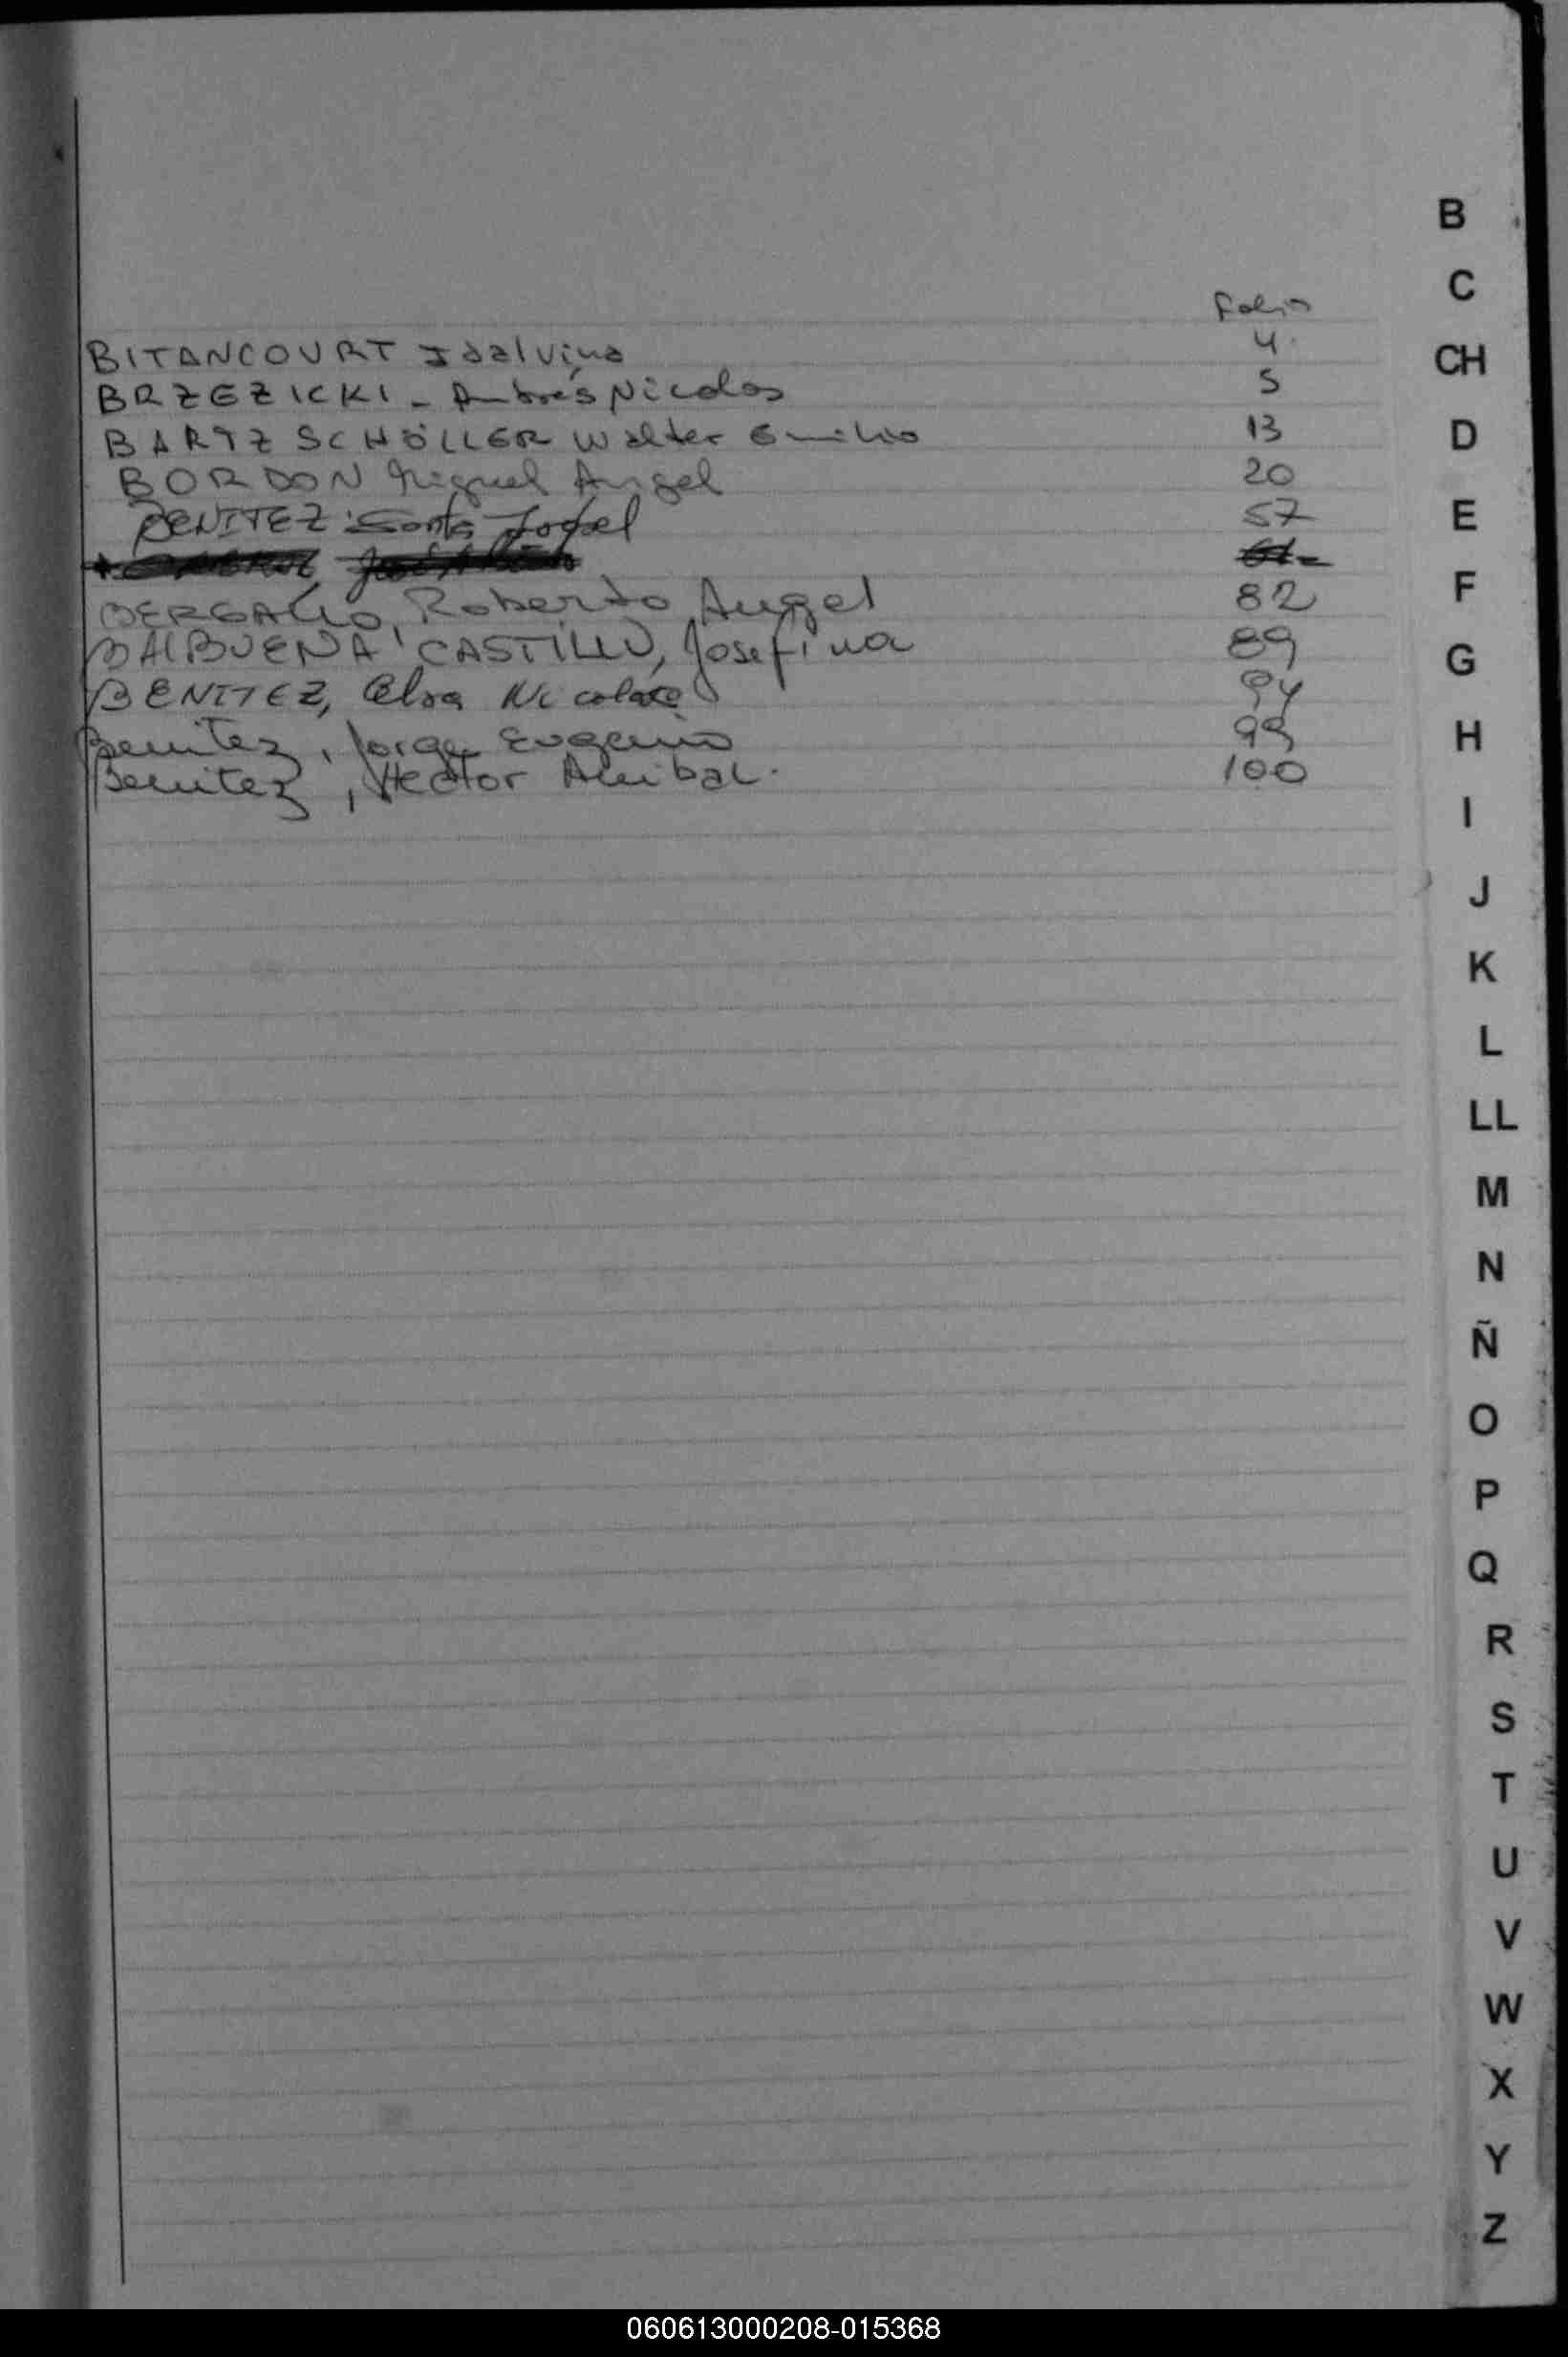 Folio
BITANCOURT Idalvina 4
BRZEZICKI - Andrés Nicolas 5
BARTZ SCHÖLLER Walter Emilio 13
BORDON Miguel Angel 20
BENITEZ 57
BERGALLO, Roberto Angel 82
BALBUENA CASTILLO, Josefina 89
BENITEZ, Elsa 94
Benitez, Jorge Eugenio 99
Benitez, Hector Anibal. 100
B
C
CH
D
E
F
G
H
I
J
K
L
LL
M
N
Ñ
O
P
Q
R
S
T
U
V
W
X
Y
Z
060613000208-015368